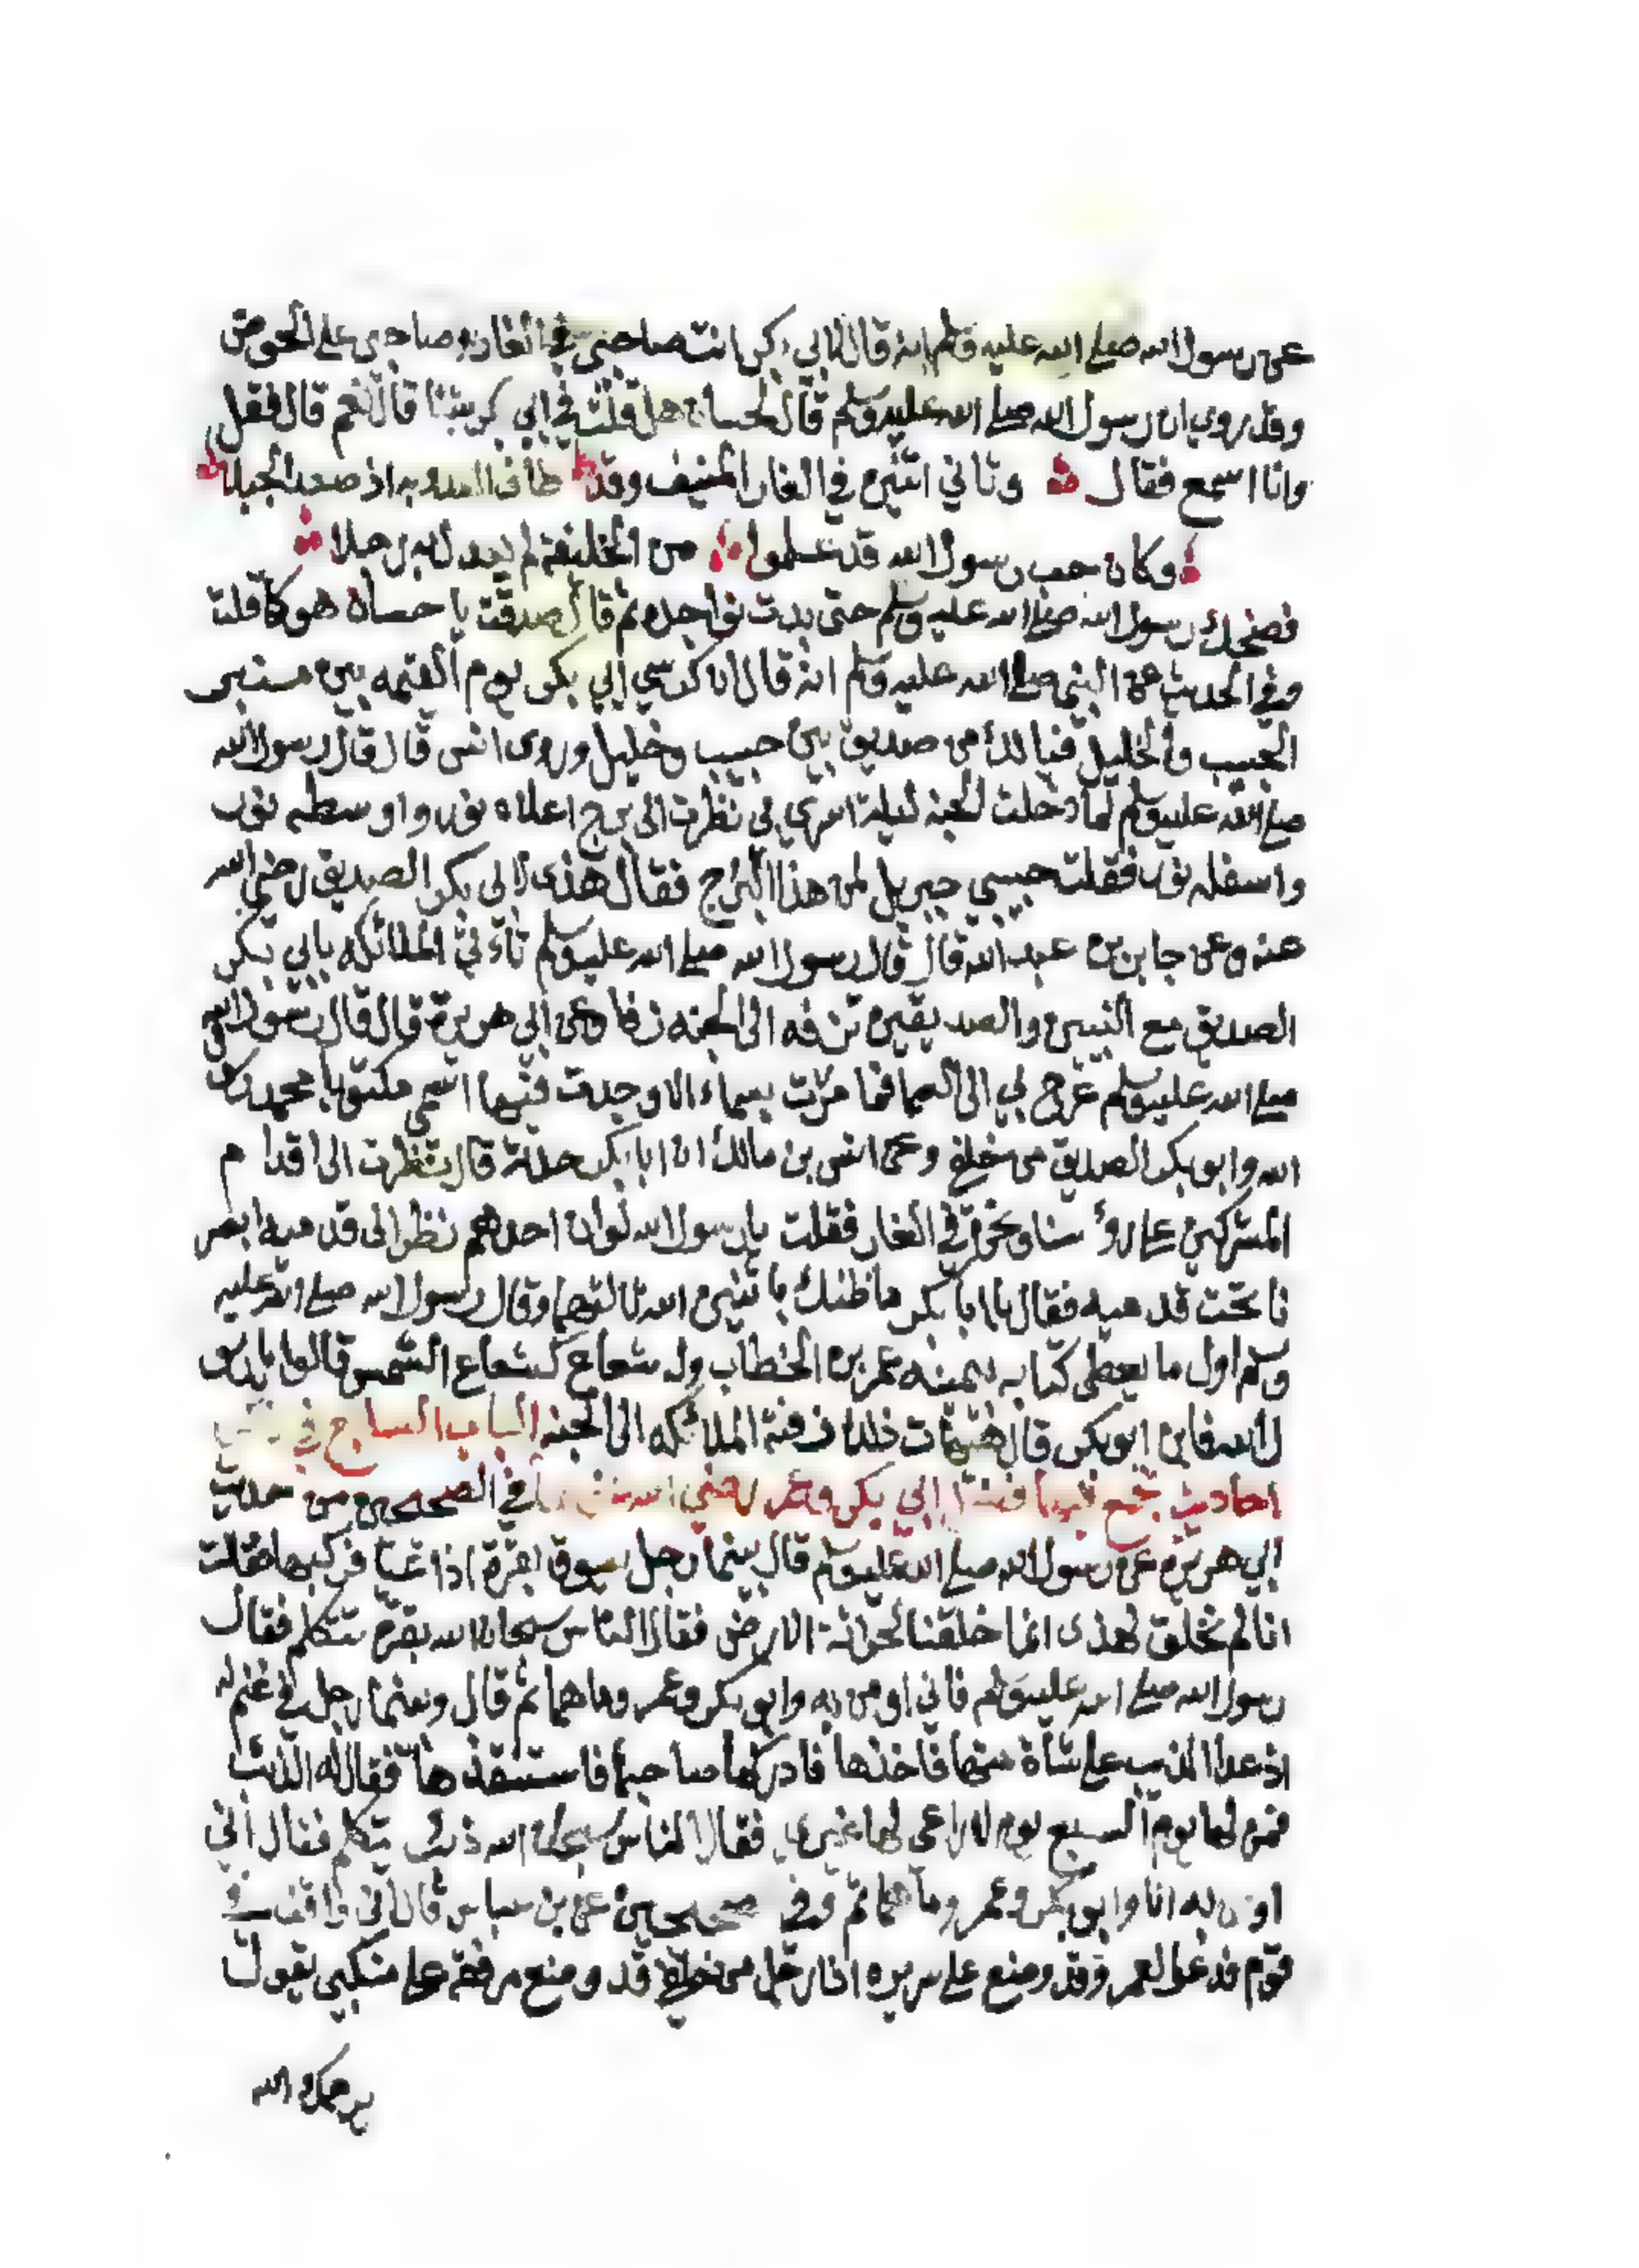 عن رسول الله صلى الله عليه وسلم انه قال لابي بكر انت صاحبي في الغار وصاحبي على الحوض
وقد روي ان رسول الله صلى الله عليه وسلم قال لحسان هل قلت في ابي بكر شيئا قال نعم قال فقل
وانا اسمع فقال وثاني اثنين في الغار المنيف وقد طاف العدو به اذ صعد الجبلا
وكان حب رسول الله قد علموا من الخليقة لم يعدل به رجلا
فضحك رسول الله صلى الله عليه وسلم حتى بدت نواجده ثم قال صدقت يا حسان هو كما قلت
وفي الحديث عن النبي صلى الله عليه وسلم انه قال ان كرسي ابي بكر يوم القيمه بين
الحبيب والخليل فيا لك من صديق بين حبيب وخليل وروى انس قال قال رسول الله
صلى الله عليه وسلم لما دخلت الجنه ليلة اسري بي نظرت الى برج اعلاه نور واوسطه نور
واسفله نور فقلت حبيبي جبريل لمن هذا البرج فقال هذى لابي بكر الصديق رضي الله
عنه وعن جابر بن عبد الله قال قال رسول الله صلى الله عليه وسلم تاءتي الملائكه بابي بكر
الصديق مع النبيين والصديقين تزفه الى الجنه زفا وعن ابي هريرة قال قال رسول الله
صلى الله عليه وسلم عرج بي الى السما فما مررت بسماء الا وجدت فيها اسمي مكتوبا محمد رسول
الله وابو بكر الصديق من خلفي وعن انس بن مالك ان ابا بكر حدثه قال نظرت الى اقدام
المشركين على رؤسنا ونحن في الغار فقلت يا رسول الله لو ان احدهم نظر الى قدميه ابصر
نا تحت قدميه فقال يا ابا بكر ما ظنك باثنين الله ثالثهما وقال رسول الله صلى الله عليه
وسلم اول ما يعطى كتابه بيمينه عمر بن الخطاب وله شعاع كشعاع الشمس قالوا يا رسو
ل الله فاين ابو بكر قال هيهات زفته الملائكه الى الجنه الباب السابع في
احاديث تجمع فيها ابي بكر وعمر رضي الله في الصحيحين من حديث
ابي هريرة عن رسول الله صلى الله عليه وسلم قال بينما رجل يسوق بقرة اذا عيا فركبها فقلت
انا لم نخلق لهذى انما خلقنا لحراثة الارض فقال الناس سبحان الله بقرة تتكلم فقال
رسول الله صلى الله عليه وسلم فاني اومن به وابو بكر وعمر وما هما ثم قال وبينما رجل في غنم له
اذ عدا الذيب على شاة منها فاخذها فادركها صاحبها فاستنقذها فقال له الذئب
فمن لها يوم السبع يوم لا راعى لها غيري فقال الناس سبحان الله ذئب يتكلم فقال اني
اومن به انا وابو بكر وعمر وما هما ثم وفي صحيحين عن بن عباس قال اني واقف في
قوم فدعوا لعمر وقد وضع على سريره اذا رجل من خلفي قد وضع مرفقه على منكبي يقول
يرحمك الله